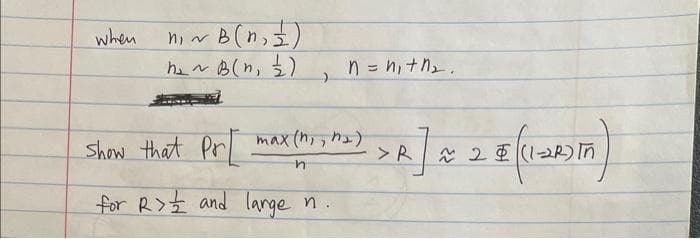 when n₁ ~ B(n, 1/2)
n₂ ~ B(n, 1/2) , n = n₁ + n₂.
Show that Pr[ max(n₁, n₂)/n > R ] ≈ 2 Φ((1-2R)√n)
for R > 1/2 and large n.